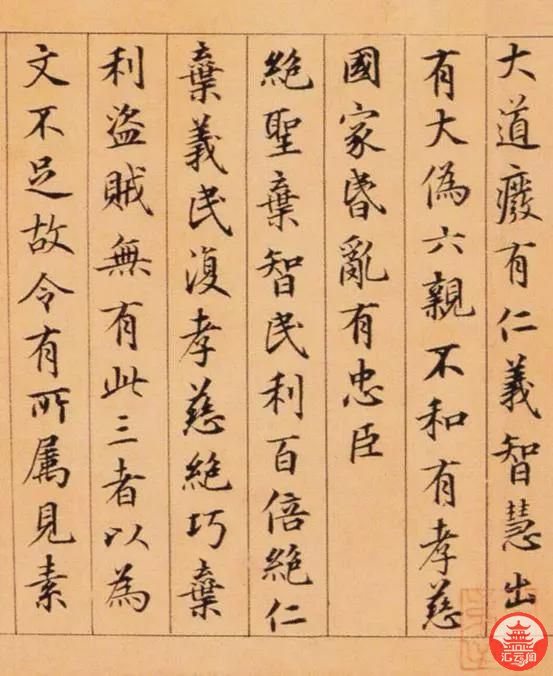 大道廢有仁義智慧出
有大偽六親不和有孝慈
國家昏亂有忠臣
絕聖棄智民利百倍絕仁
棄義民復孝慈絕巧棄
利盜賊無有此三者以為
文不足故令有所属見素
汇云阁